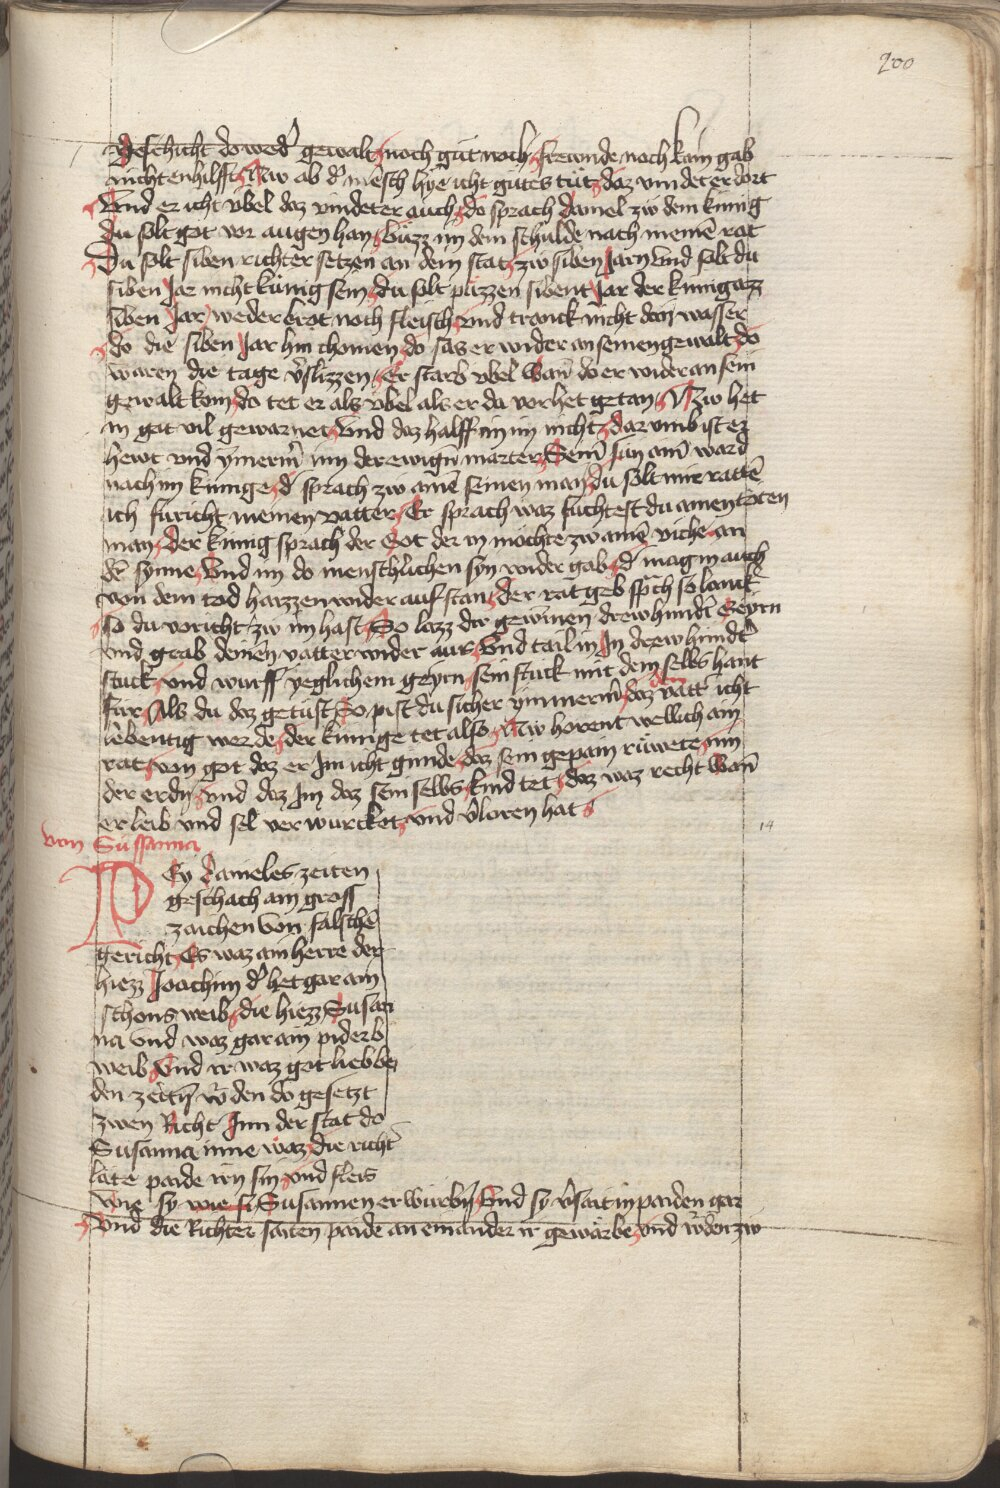 200
geschicht do wed' gewalt noch gut noch frewnde noch kain gab
nicht enhilfft Nw ab d' mensch hye icht gutes tut daz vindet er dort
Vnd er icht vbel daz vindet er auch do sprach daniel zw dem kunig
du solt got vor augen han buzz im dein schulde nach meine rat
Du solt siben richter setzen an dein stat zw siben Jarn Vnd solt du
siben Jar nicht kunig sein du solt puzzen sibent Jar der kunig azz
siben Jar weder brot noch fleisch vnd tranck nicht dan wasser
do die siben Jar hin chomen do sas er wider an seinen gewalt do
waren die tage v'slizzen Er starb vbel Wan do er wider an sein
gewalt kom do tet er als vbel als er da vor het getan Nw het
in got vil gewarnet Vnd daz halff in im nicht dar vmb ist ez
hewt vnd ymerm' inn der ewign marter Sein sun ain ward
nach im kunige d' sprach zw aine seinen man du solt mir ratte
ich furicht meinen vatter Er sprach waz fuchtest du ainen toten
man der kunig sprach der Got der in mochte zw aine viche an
de synne Vnd im do menschlichen syn wider gab d' mag in auch
von dem tod haizzen wider auf stan der rat geb sprach so lanck
so du voricht zw im hast So lazz dir gewinnen drewhundt Geyrn
vnd grab deinen vatter wider aus Vnd tail in In drewhundt
stuck vnd wurff yeglichem geyrn sein stuck mit dein selbs hant
fur Als du daz getust So pist du sicher ymmerm' daz vatt' icht
lebentig werde der kunige tet also Nw horent wellich ain
rat von got daz er Im icht gunde daz sein gepain ruwete inn
der erdn vnd daz Im daz sein selbs kind tet daz waz recht Wan
er leib vnd sel ver wurcket vnd v'loren hat
14
von Susanna
BEy danieles zeiten
geschach ain gross
zaichen Von falsche
gericht Es waz ain herre der
hiezz Joachim d' het gar ain
schons weib die hiezz Susan
na Vnd waz gar ain piderb
weib Vnd ir waz got lieb be
den zeitn w'den do gesetzt
zwen Richt Inn der stat do
Susanna inne waz die richt'
late paide irn sin vnd fleis
wie sy wie si Susannen erwurbn Vnd sy v'sait in paiden gar
Vnd die Richter saiten paide an einander ir gewarbe vnd w'den zw